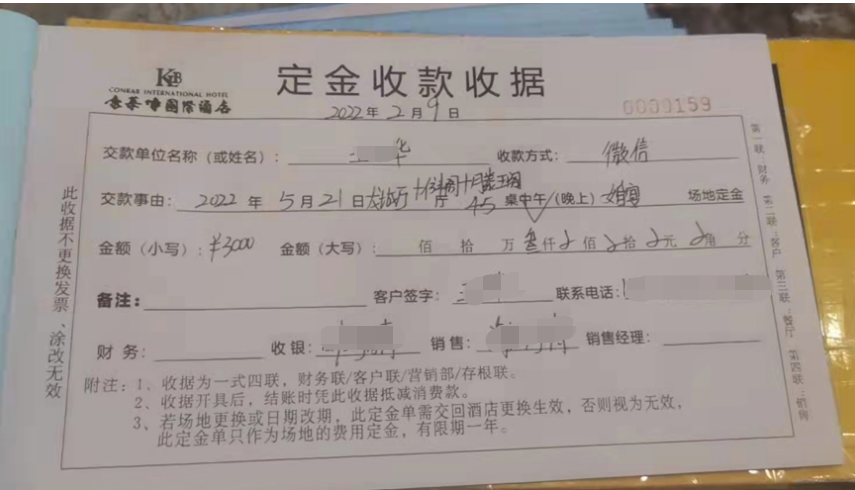 KLB
CONRAR INTERNATIONAL HOTEL
定金收款收据
0000159
2022年2月9日
交款单位名称（或姓名）： 华 收款方式： 微信
交款事由： 2022年5月21日 厅 45 桌中午/(晚上) 场地定金
金额（小写）: ¥3000 金额（大写）: 佰 拾 万 叁仟 佰 拾 元 角 分
备注: 客户签字: 联系电话:
财务: 收银: 销售: 销售经理:
附注：1、收据为一式四联，财务联/客户联/营销部/存根联。
2、收据开具后，结账时凭此收据抵减消费款。
3、若场地更换或日期改期，此定金单需交回酒店更换生效，否则视为无效，
此定金单只作为场地的费用定金，有限期一年。
此收据不更换发票、涂改无效
第一联:财务 第二联:客户 第三联:餐厅 第四联:销售